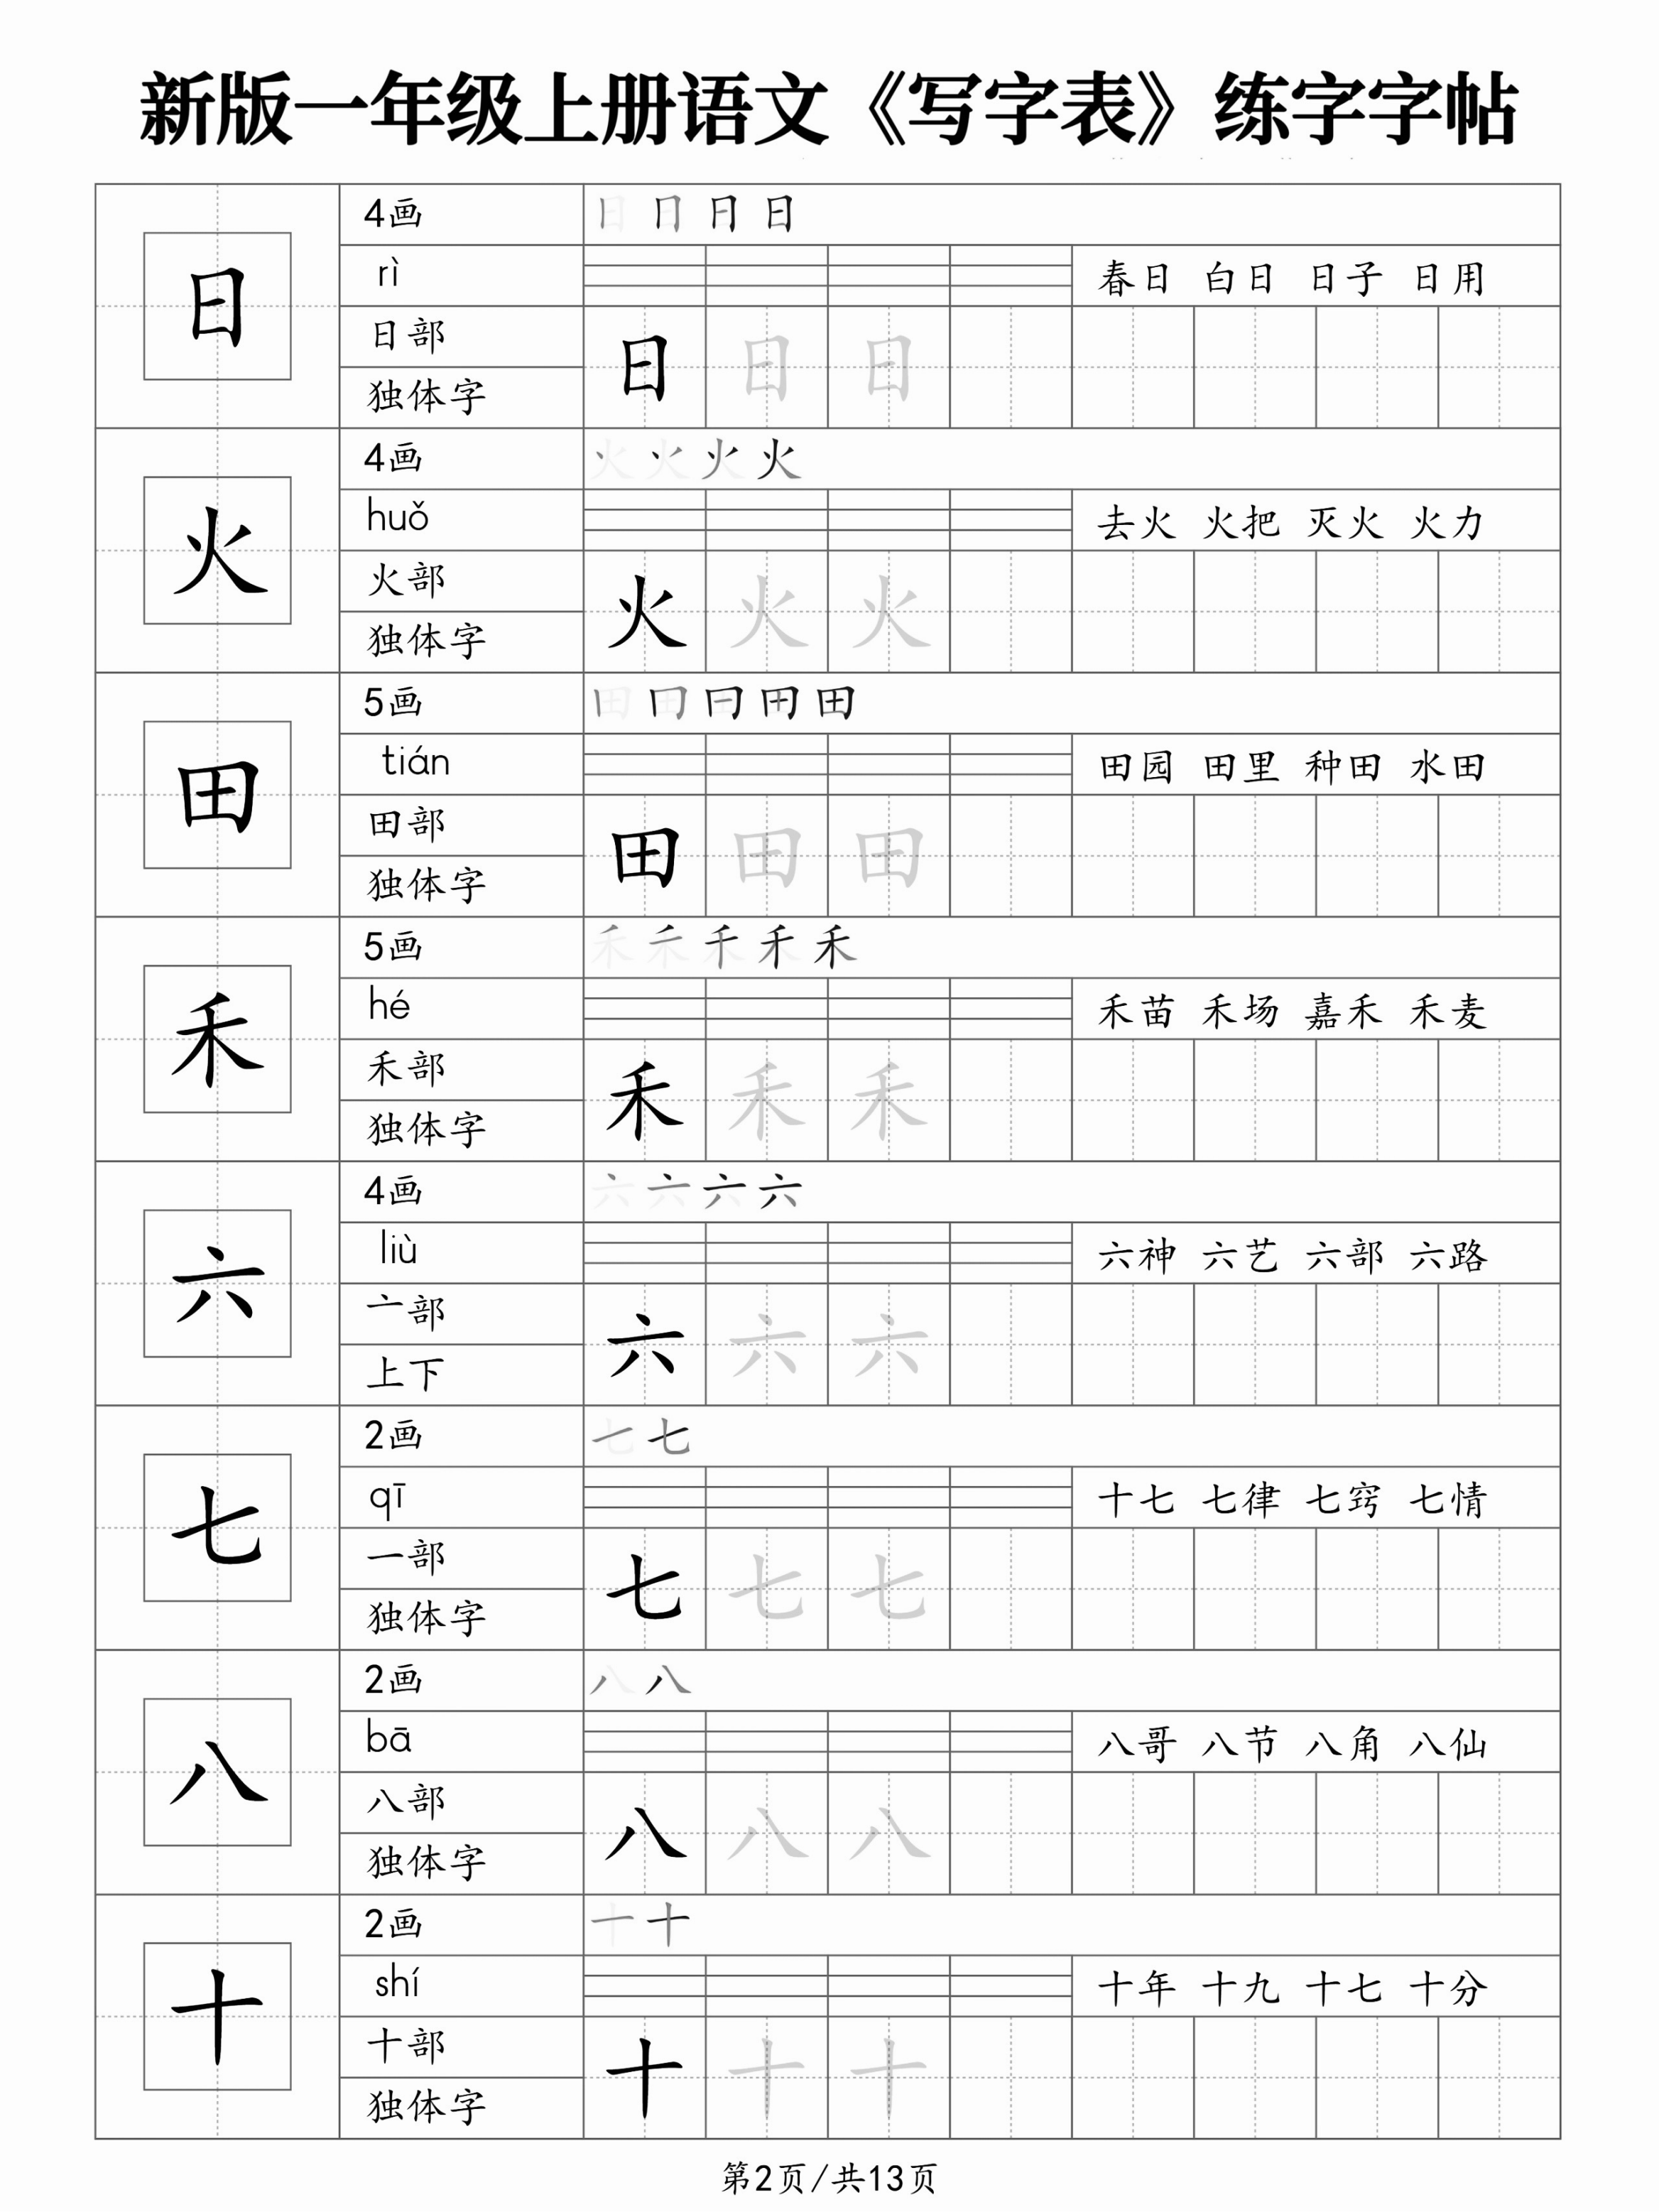 新版一年级上册语文《写字表》练字字帖
日
4画
日 日 日 日
rì
春日 白日 日子 日用
日部
独体字
日 日 日
火
4画
火 火 火 火
huǒ
去火 火把 灭火 火力
火部
独体字
火 火 火
田
5画
田 田 田 田 田
tián
田园 田里 种田 水田
田部
独体字
田 田 田
禾
5画
禾 禾 禾 禾 禾
hé
禾苗 禾场 嘉禾 禾麦
禾部
独体字
禾 禾 禾
六
4画
六 六 六 六
liù
六神 六艺 六部 六路
亠部
上下
六 六 六
七
2画
七 七
qī
十七 七律 七窍 七情
一部
独体字
七 七 七
八
2画
八 八
bā
八哥 八节 八角 八仙
八部
独体字
八 八 八
十
2画
十 十
shí
十年 十九 十七 十分
十部
独体字
十 十 十
第2页/共13页